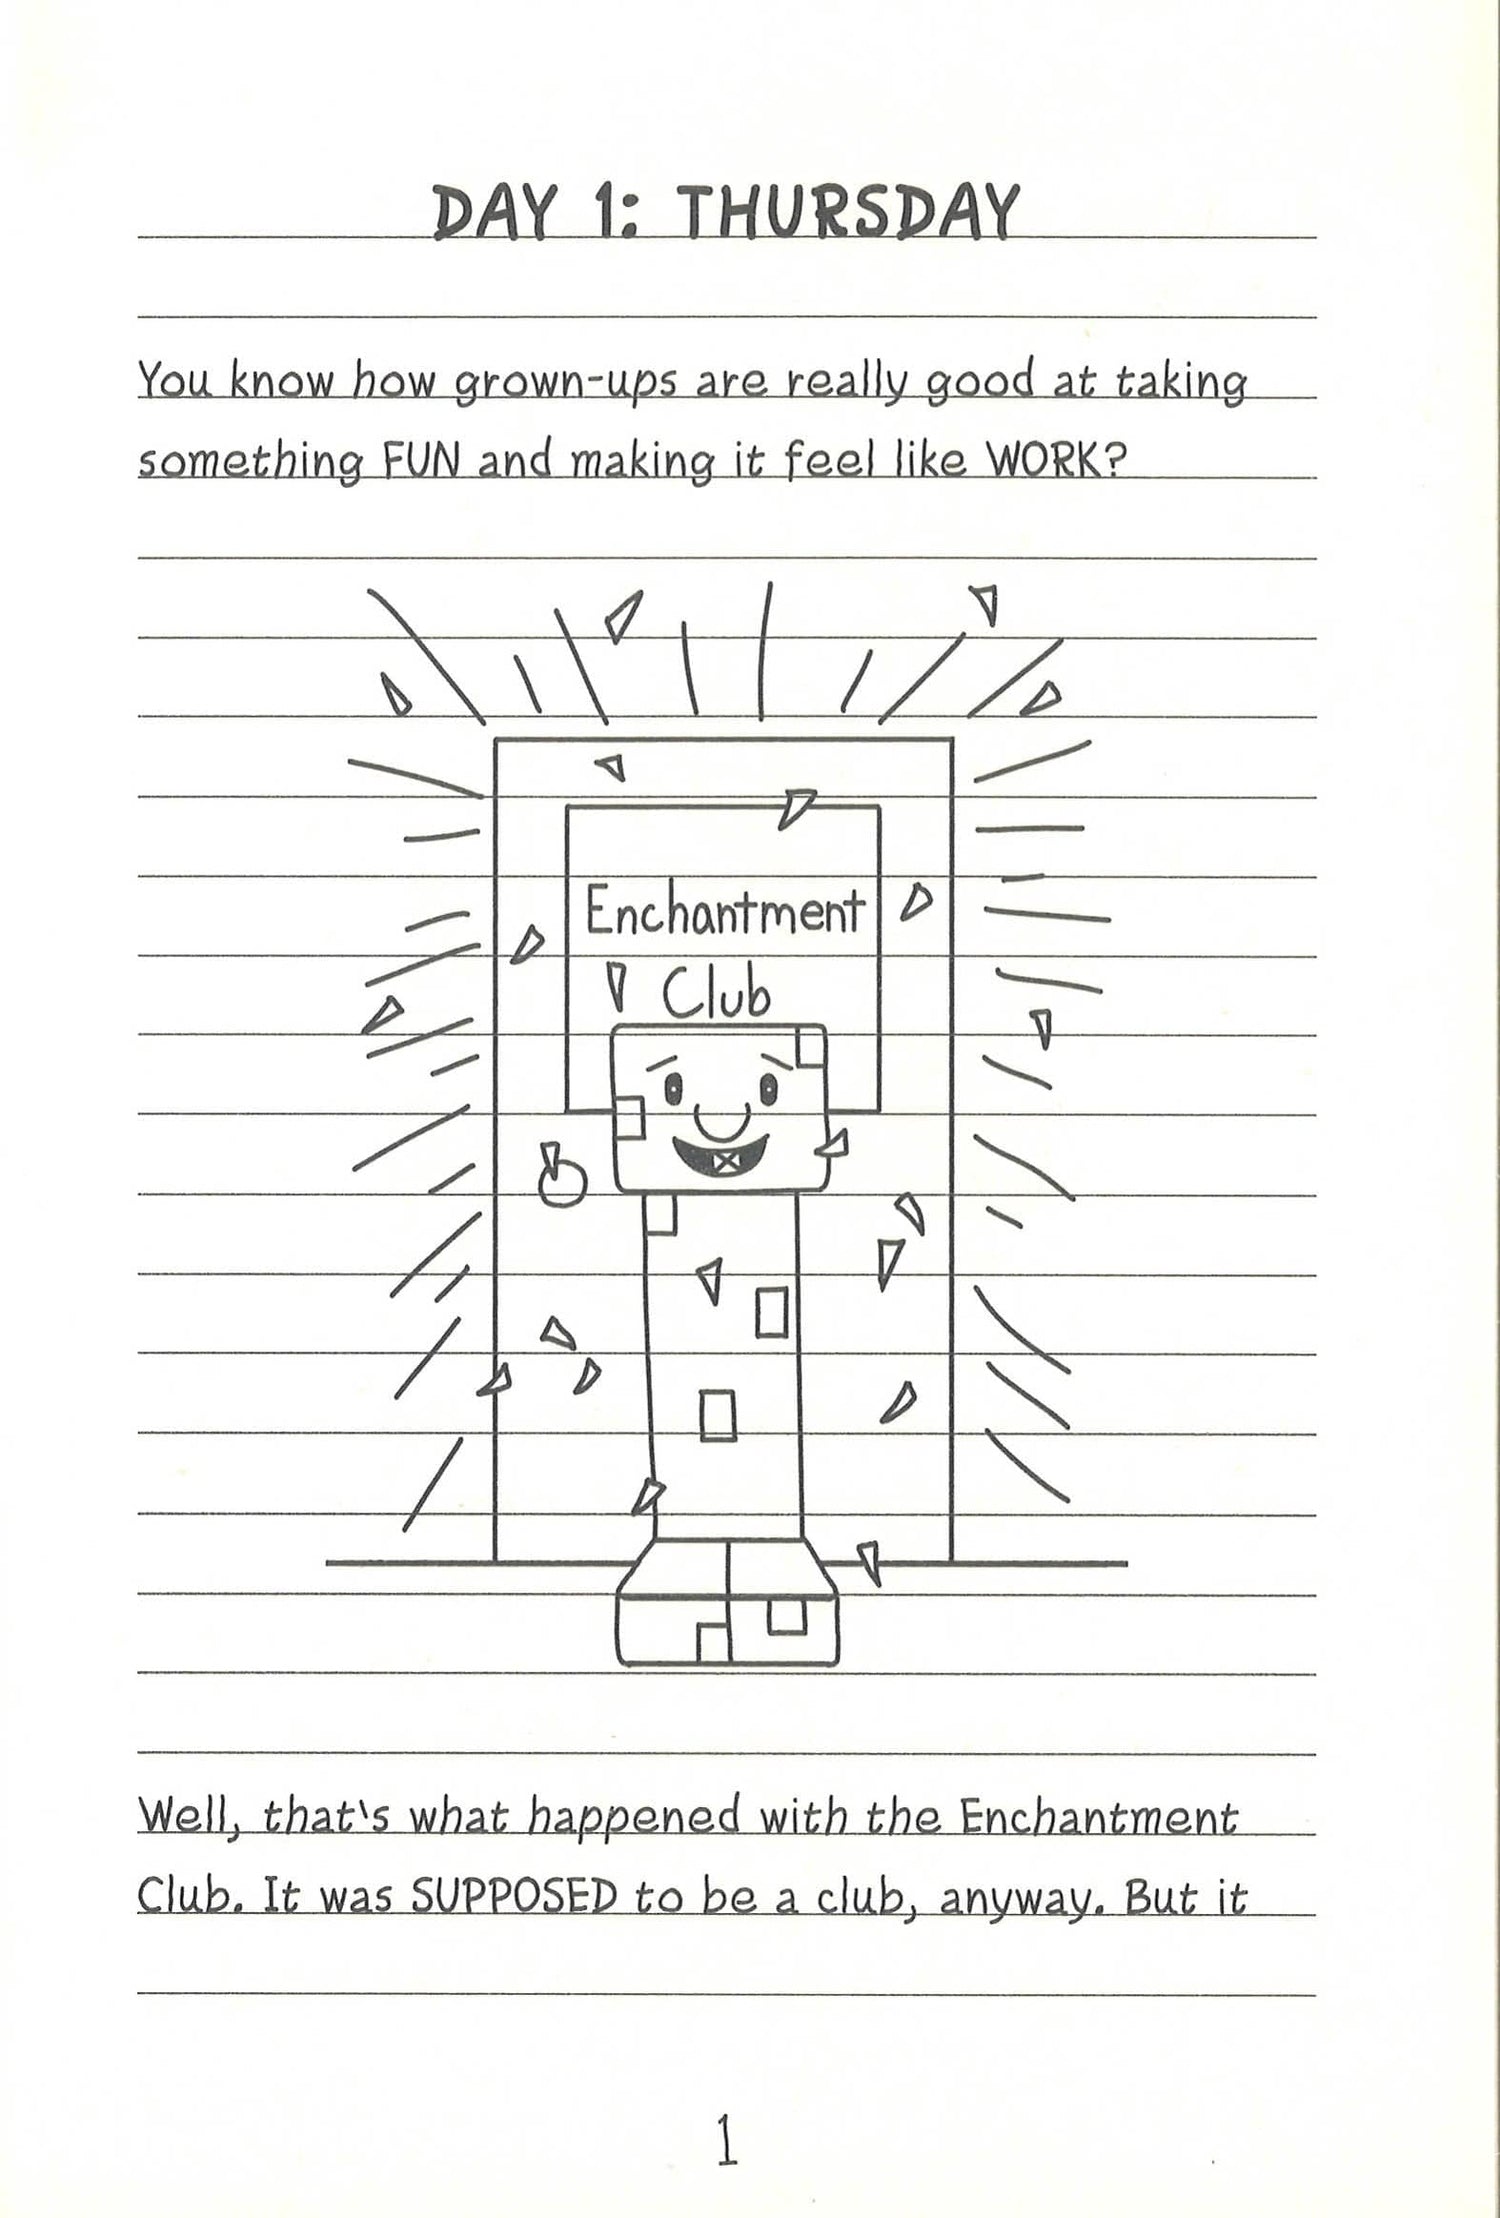 DAY 1: THURSDAY
You know how grown-ups are really good at taking
something FUN and making it feel like WORK?
Enchantment
Club
Well, that's what happened with the Enchantment
Club. It was SUPPOSED to be a club, anyway. But it
1